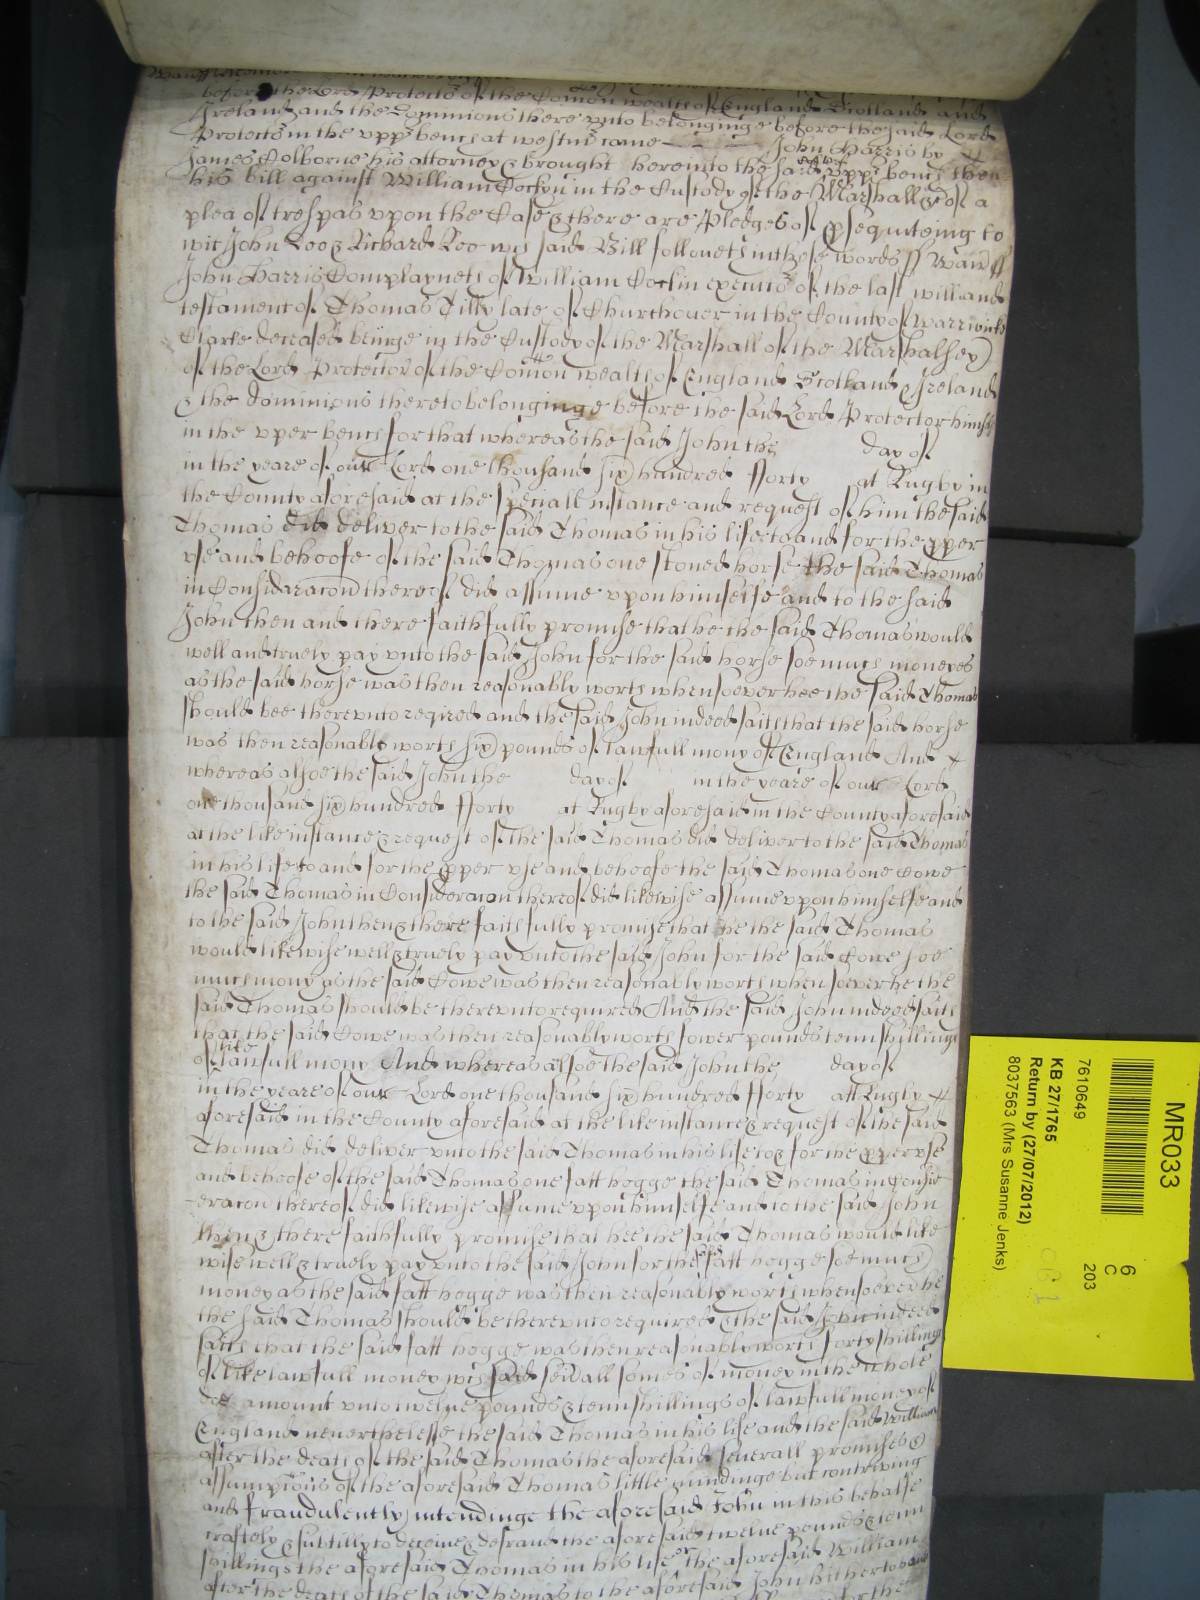 before the Lord Protector of the Com̃on wealth of England Scotland and
Ireland and the Dominions there vnto belonginge before the said Lord
Protector in the vpper bench at westm̃r came — — — John Harris by
James Colborne his attorney & brought here into the said vpper bench then
his bill against William Cockyn in the Custody of the Marshall &c of a
plea of trespas vpon the Case & there are Pledges of psequuteing to
wit John Doo & Richard Roo wch said Bill followeth in these words ss Warr ss
John Harris Complayneth of William Cockin executor of the last will and
testament of Thomas Tilly late of Churchover in the County of warrwicke
Clarke deceased beinge in the Custody of the Marshall of the Marshalsey
of the Lord Protector of the Com̃on wealth of England Scotland & Ireland
& the dominions thereto belonginge before the said Lord Protector himself
in the vper bench for that whereas the said John the day of
in the yeare of our Lord one thousand six hundred fforty at Rugby in
the County aforesaid at the speciall instance and request of him the said
Thomas did deliver to the said Thomas in his life to and for the pper
vse and behoofe of the said Thomas one stoned horse the said Thomas
in Consideracon thereof did assume vpon himselfe and to the said
John then and there faithfully promise that he the said Thomas would
well and truely pay vnto the said John for the said horse soe much moneyes
as the said horse was then reasonably worth whensoever hee the said Thomas
should bee therevnto reqired and the said John indeed saith that the said horse
was then reasonably worth six pounds of lawfull mony of England And
whereas alsoe the said John the day of in the yeare of our Lord
one thousand six hundred fforty at Rugby aforesaid in the County aforesaid
at the like instance & request of the said Thomas did deliver to the said Thomas
in his life to and for the pper vse and behoofe the said Thomas one Cowe
the said Thomas in Consideracon thereof did likewise assume vpon himselfe and
to the said John then & there faithfully promise that he the said Thomas
would likewise well & truely pay vnto the said John for the said Cowe soe
much mony as the said Cowe was then reasonably worth when soever he the
said Thomas should be therevnto required And the said John indeed saith
that the said Cowe was then reasonably worth fower pounds tenn shillings
of like lawfull mony And whereas alsoe the said John the day of
in the yeare of our Lord one thousand six hundred fforty att Rugby
aforesaid in the County aforesaid at the like instance & request of the said
Thomas did deliver vnto the said Thomas in his life to & for the pper vse
and behoofe of the said Thomas one fatt hogge the said Thomas in Consid
eracon thereof did likewise assume vpon himselfe and to the said John
then & there faithfully promise that hee the said Thomas would like
wise well & truely pay vnto the said John for the said fatt hogge soe much
money as the said fatt hogge was then reasonably worth whensoever he
the said Thomas should be therevnto required & the said John indeed
saith that the said fatt hogge was then reasonably worth forty shillings
of like lawfull money wch said seu̅all somes of money in the whole
doe amount vnto twelue pounds & tenn shillings of lawfull money of
England neverthelesse the said Thomas in his life and the said William
after the death of the said Thomas the aforesaid severall promises &
assumptions of the aforesaid Thomas little mindinge but contriving
and fraudulently intendinge the aforesaid John in this behalfe
craftely & subtilly to deceive & defraud the aforesaid twelue pounds & tenn
shillings the aforesaid Thomas in his life or the aforesaid William
after the death of the said Thomas to the aforesaid John hitherto haue
MR033
6
C
203
7610649
KB 27/1765
Return by (27/07/2012)
8037563 (Mrs Susanne Jenks)